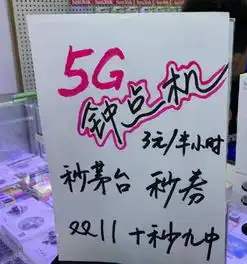 SanDisk SanDisk SanDisk
5G
钟点机
3元/半小时
秒茅台 秒券
双11 十秒九中